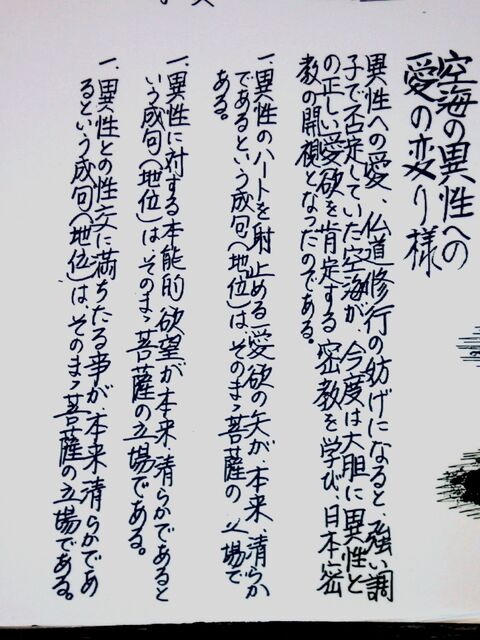 空海の異性への
愛の変り様
異性への愛、仏道修行の妨げになると、強い調
子で否定していた空海が、今度は大胆に異性と
の正しい愛欲を肯定する密教を学び、日本密
教の開祖となったのである。
一、異性のハートを射止める愛欲の矢が、本来清らか
であるという成句(地位)は、そのまゝ菩薩の立場で
ある。
一、異性に対する本能的欲望が本来、清らかであると
いう成句(地位)は、そのまゝ菩薩の立場である。
一、異性との性交に満ちたる事が、本来清らかであ
るという成句(地位)は、そのまゝ菩薩の立場である。